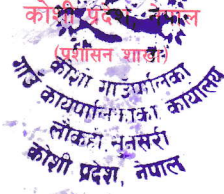 कोशी प्रदेश, नेपाल
(प्रशासन शाखा)
कोशी गाउँपालिका
गाउँ कार्यपालिकाको कार्यालय
लौकही, सुनसरी
कोशी प्रदेश, नेपाल